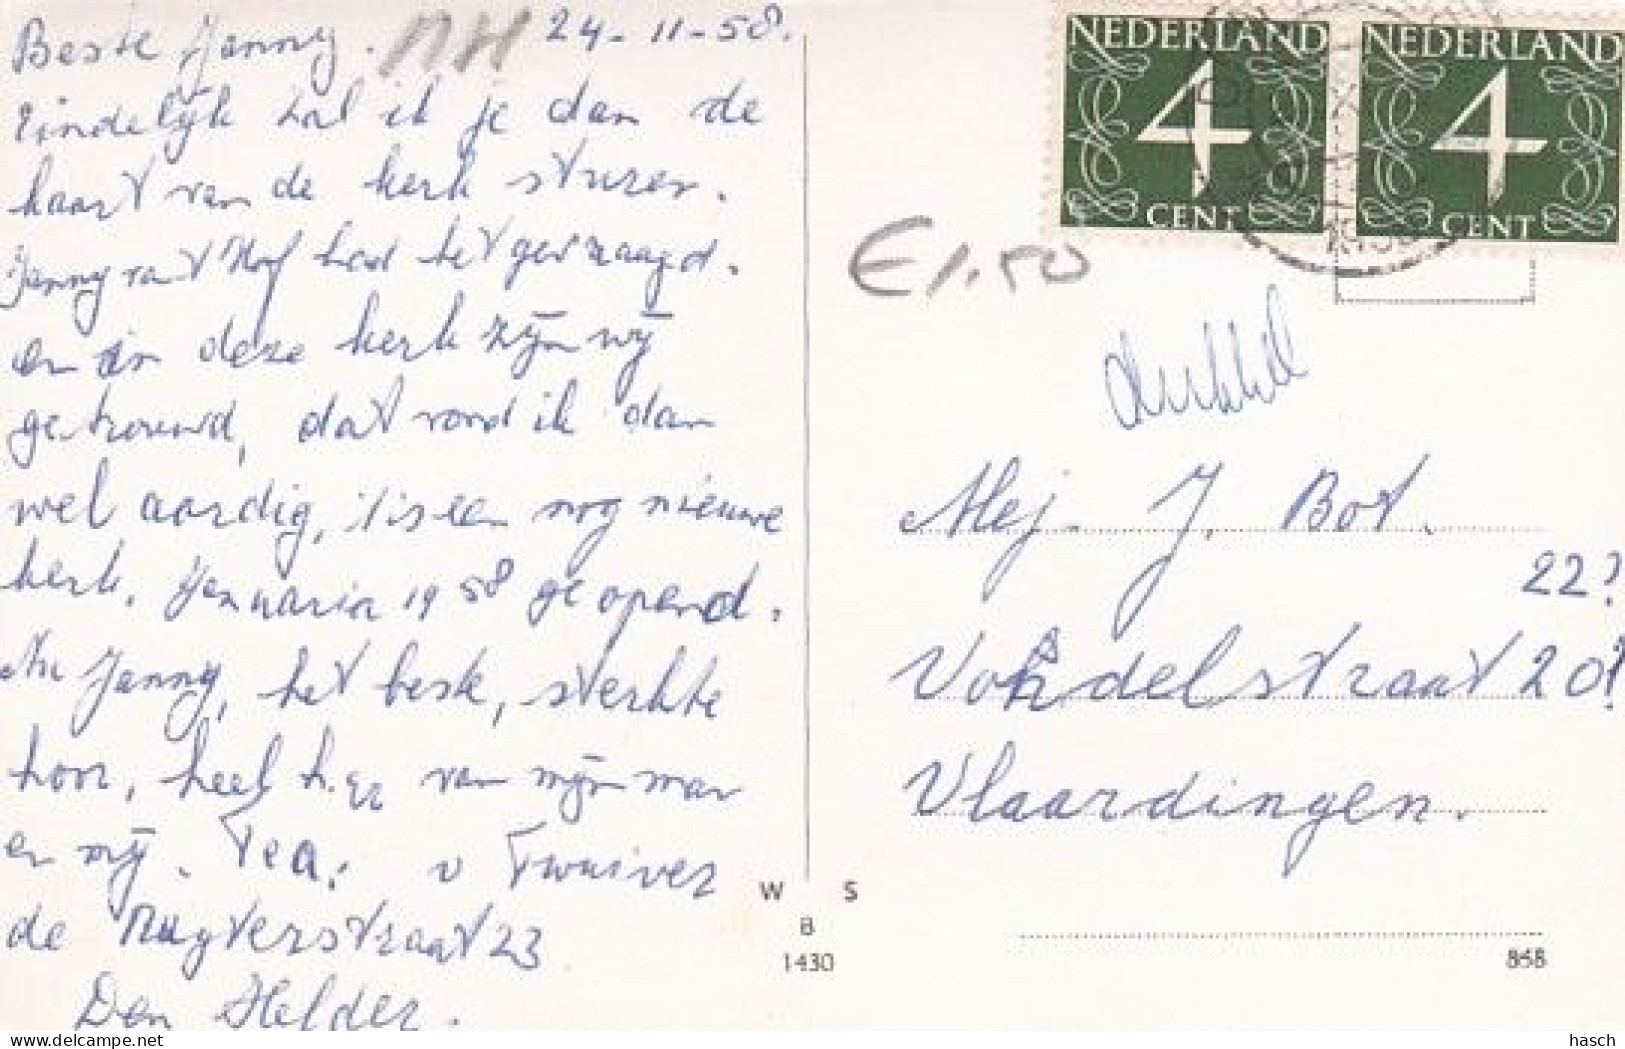 Beste Janny. NH 24-11-58.
Eindelijk zal ik je dan de
kaart van de kerk sturen.
Janny van 't Hof had het gevraagd.
en in deze kerk zijn wij
getrouwd, dat vond ik dan
wel aardig, 't is een nog nieuwe
kerk. Januarie 1958 geopend.
Nu Janny, het beste, sterkte
hoor, heel h. gr van mijn man
en mij. Tea. v Twuiver
de Ruyterstraat 23
Den Helder.
NEDERLAND
4
CENT
NEDERLAND
4
CENT
€1.50
dubbel
Mej. J. Bot.
22?
Vondelstraat 20?
Vlaardingen.
W S
B
1430
868
hasch
delcampe.net